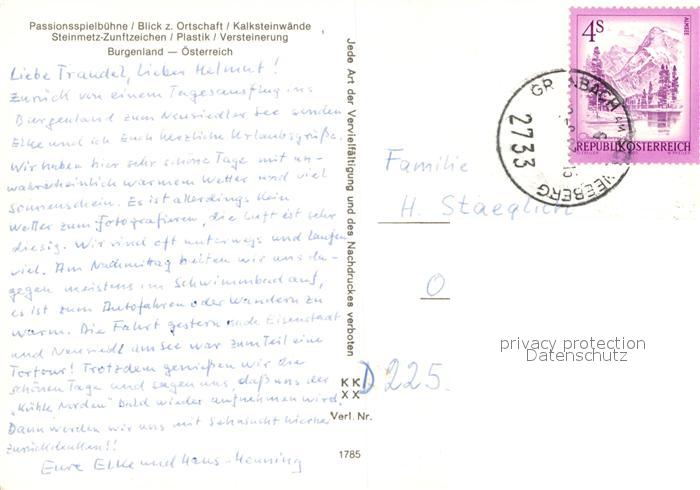 Passionsspielbühne / Blick z. Ortschaft / Kalksteinwände
Steinmetz-Zunftzeichen / Plastik / Versteinerung
Burgenland — Österreich
Liebe Traudel, lieber Helmut!
Zurück von einem Tagesausflug ins
Burgenland zum Neusiedler See senden
Elke und ich Euch herzliche Urlaubsgrüße.
Wir haben hier sehr schöne Tage mit un-
wahrscheinlich warmem Wetter und viel
Sonnenschein. Es ist allerdings kein
Wetter zum Fotografieren, die Luft ist sehr
diesig. Wir sind oft unterwegs und laufen
viel. Am Nachmittag halten wir uns da-
gegen meistens im Schwimmbad auf,
es ist zum Autofahren oder Wandern zu
warm. Die Fahrt gestern nach Eisenstadt
und Neusiedl am See war zum Teil eine
Tortour! Trotzdem genießen wir die
schönen Tage und sagen uns, daß uns der
„Kühle Norden" bald wieder aufnehmen wird.
Dann werden wir uns mit Sehnsucht hierher
zurückdenken!!
Eure Elke und Hans-Henning
Jede Art der Vervielfältigung und des Nachdruckes verboten
KK
XX
Verl. Nr.
1785
D 225.
4S
ALMSEE
REPUBLIK ÖSTERREICH
GRÜNBACH AM SCHNEEBERG
2733
Familie
H. Staeglich
O
privacy protection
Datenschutz